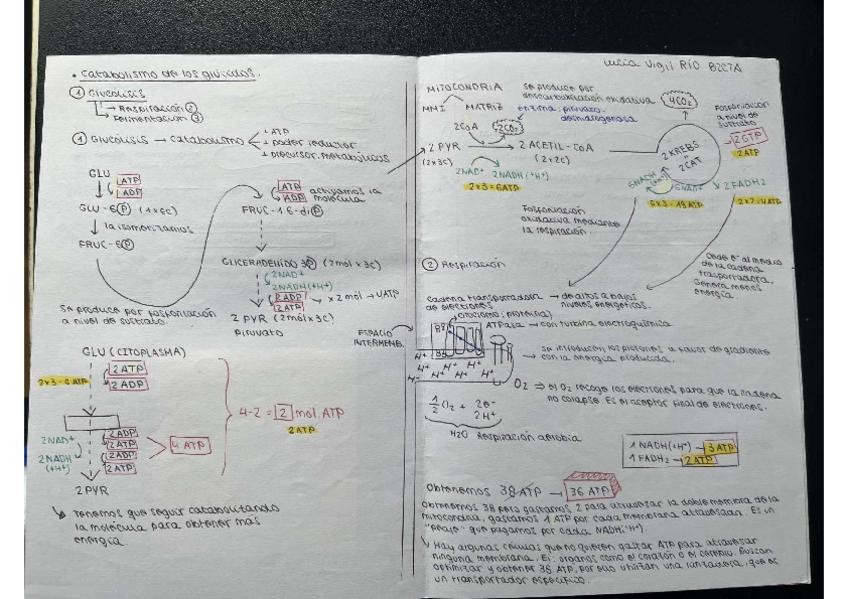 • Catabolismo de los glúcidos.
① Glucólisis
→ Respiración ②
→ Fermentación ③
① Glucólisis → catabolismo
↓ ATP
↓ poder reductor
↓ precursor metabólicos
GLU
ATP
ADP
GLU-6Ⓟ (1x6C)
↓ la isomerizamos
FRUC-6Ⓟ
ATP
ADP
activamos la
molécula
FRUC-1 6-diⓅ
GLICERALDEHÍDO 3Ⓟ (2mol x 3C)
2NAD+
2NADH(+H+)
2 ADP
2 ATP
x 2 mol → 4ATP
2 PYR (2mol x 3C)
Piruvato
Se produce por fosforilación
a nivel de sustrato.
GLU (CITOPLASMA)
2 ATP
2 ADP
2x3 = 6 ATP
2NAD+
2 NADH
(+H+)
2 ADP
2 ATP
2 ADP
2 ATP
4 ATP
4-2 = 2 mol. ATP
2 ATP
2 PYR
↳ Tenemos que seguir catabolizando
la molécula para obtener más
energía
Lucía Vigil Río B2CTA
MITOCONDRIA
MMI MATRIZ
se produce por
descarboxilación oxidativa
enzima: piruvato
deshidrogenasa
2CoA
2CO2
2 PYR → 2 ACETIL-CoA
(2x3C) (2x2C)
2NAD+ 2NADH(+H+)
2x3 = 6ATP
4CO2
2KREBS
2CAT
Fosforilación
a nivel de
sustrato
2GTP
2ATP
6NADH
6NAD+
6x3 = 18 ATP
2FADH2
2x2 = 4ATP
Fosforilación
oxidativa mediante
la respiración.
Cede e- al medio
de la cadena
trasportadora,
genera menos
energía.
② Respiración
Cadena transportadora → de altos a bajos
de electrones niveles energéticos.
ESPACIO
INTERMEMB.
ATPasa → con turbina electroquímica
H+ H+ H+ H+ H+ H+
→ se introducen los protones a favor de gradiente
con la energía producida.
O2 ⇒ el O2 recoge los electrones para que la cadena
no colapse. Es el aceptor final de electrones.
1/2 O2 + 2e-
2H+
H2O Respiración aerobia
1 NADH(+H+) → 3ATP
1 FADH2 → 2 ATP
Obtenemos 38 ATP → 36 ATP
Obtenemos 38 pero gastamos 2 para atravesar la doble membrana de la
mitocondria, gastamos 1 ATP por cada membrana atravesada. Es un
"peaje" que pagamos por cada NADH(+H+)
↳ Hay algunas células que no quieren gastar ATP para atravesar
ninguna membrana. Ej: órganos como el corazón o el cerebro. Buscan
optimizar y obtener 38 ATP, por eso utilizan una lanzadora, que es
un transportador específico.